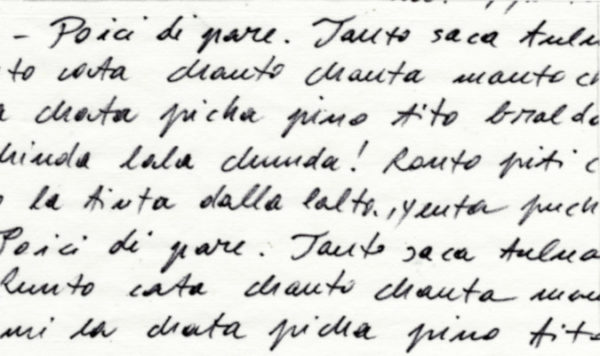 - Poici di pare. Tanto saca
to cata chanto chanta manto
chata picha pino tito braldo
lala chunda! Ronto piti
la tinta dalla lalto, yenta
Poici di pare. Tanto saca
Runto cata chanto chanta
mi la chata picha pino tito